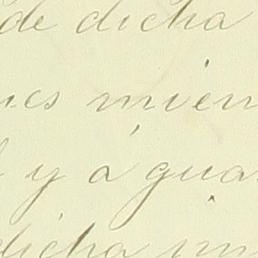 de dicha
mien
y á gua
dicha